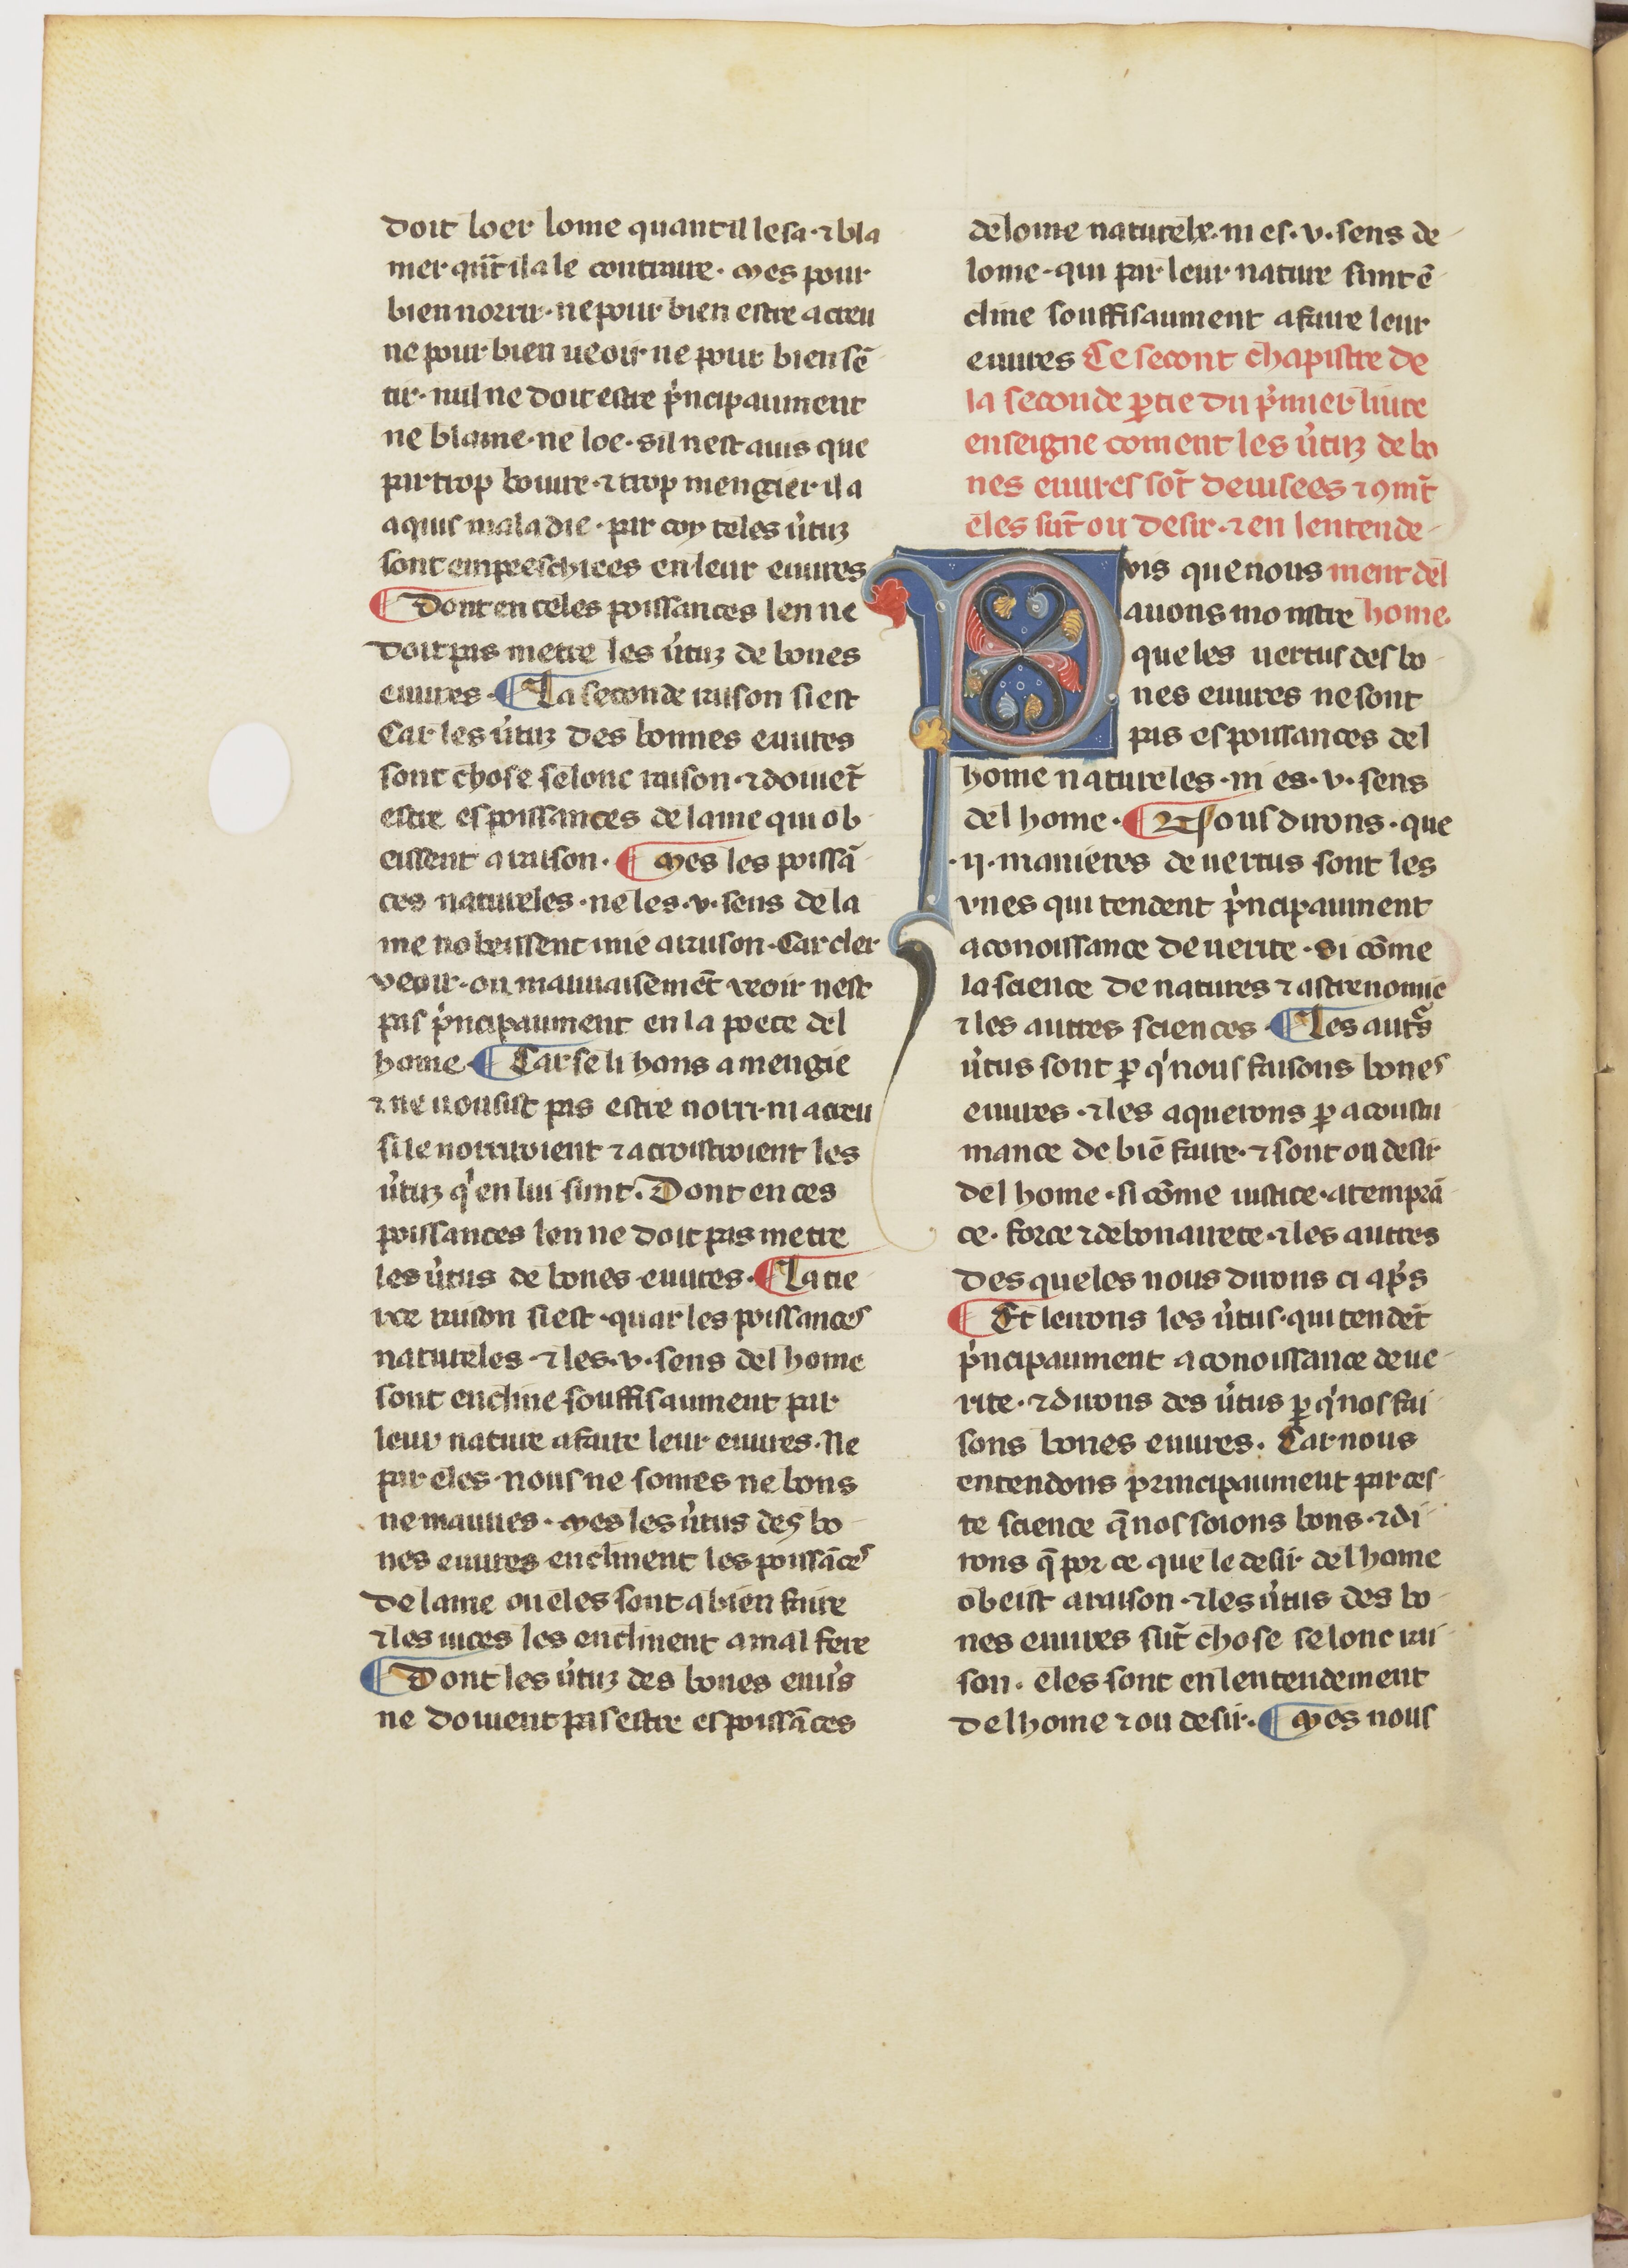 doit loer lome quant il lesa· ⁊ bla
mer qu̅t il a le contraire· mes pour
bien norrir· ne pour bien estre acreu
ne pour bien ueoir ne pour bien sē
tir· nul ne doit estre p͛ncipaument
ne blame· ne loe· sil nest auis que
par trop boiure· ⁊ trop mengier il a
aquis maladie· par coy teles u͛tuz
sont empeeschiees en leur euures
¶ Dont en celes poissances len ne
doit pas metre les u͛tuz de bones
euures· ¶ La seconde raison si est
Car les u͛tuz des bonnes euures
sont chose selonc raison· ⁊ doiuēt
estre es poissances de lame qui ob
eissent a raison· ¶ Mes les poissā
ces natureles· ne les· v· sens de la
me nobeissent mie a raison· Car cler
veoir· ou mauuaisemēt veoir nest
pas p͛ncipaument en la poete del
home· ¶ Car se li hons a mengie
⁊ ne uousist pas estre norri· ni acreu
si le norriroient ⁊ acroistroient les
u͛tuz q͛ en lui sunt· Dont en ces
poissances len ne doit pas metre
les u͛tus de bones euures· ¶ La tie
rce raison si est· quar les poissances
natureles· ⁊ les· v· sens del home
sont encline souffisaument par
leur nature a faire leur euures· Ne
par eles· nous ne somes ne bons
ne mauues· Mes les u͛tus des bo
nes euures enclinent les poissāces
de lame ou eles sont a bien faire
⁊ les uices les enclinent a mal fere
¶ Dont les u͛tuz des bones euu͛s
ne doiuent pas estre es poissāces
de lome naturelx· ni es· v· sens de
lome· qui par leur nature sunt ē
cline souffisaument a faire leur
euures Ce secont chapistre de
la seconde ꝑtie du p͛mier liure
enseigne coment les u͛tuz de bo
nes euures sōt deuisees ⁊ ꝯmēt
eles sūt ou desir· ⁊ en lentende
Pvis que nous ment del
auons mo nstre home·
que les uertus des bo
nes euures ne sont
pas es poissances del
home natureles· ni es· v· sens
del home· ¶ Nous dirons· que
·ij· manieres de uertus sont les
vnes qui tendent p͛ncipaument
a conoissance de uerite· si cōme
la science de natures ⁊ astrenomie
⁊ les autres sciences· ¶ Les autr͛s
u͛tus sont ꝑ q͛ nous faisons bones
euures· ⁊ les aquerons ꝑ acoustu
mance de biē faire· ⁊ sont ou desir
del home· si cōme iustice· atemprā
ce· force ⁊ debonairete· ⁊ les autres
des queles nous dirons ci ap͛s
¶ Et leirons les u͛tus· qui tendēt
p͛ncipaument a conoissance de ue
rite· ⁊ dirons des u͛tus ꝑ q͛ nos fai
sons bones euures· Car nous
entendons principaument par ces
te science q̄ nos soions bons· ⁊ di
rons q̄ por ce que le desir del home
obeist a raison· ⁊ les u͛tus des bo
nes euures sūt chose selonc rai
son· eles sont en lentendement
del home ⁊ ou desir· ¶ Mes nous